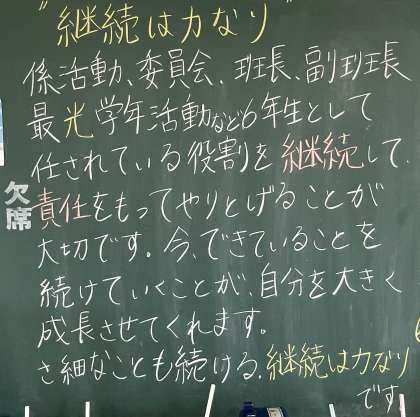 "継続は力なり"
係活動、委員会、班長、副班長
最光学年活動など6年生として
任されている役割を継続して、
責任をもってやりとげることが
大切です。今、できていることを
続けていくことが、自分を大きく
成長させてくれます。
さ細なことも続ける。継続は力なり
です
欠席